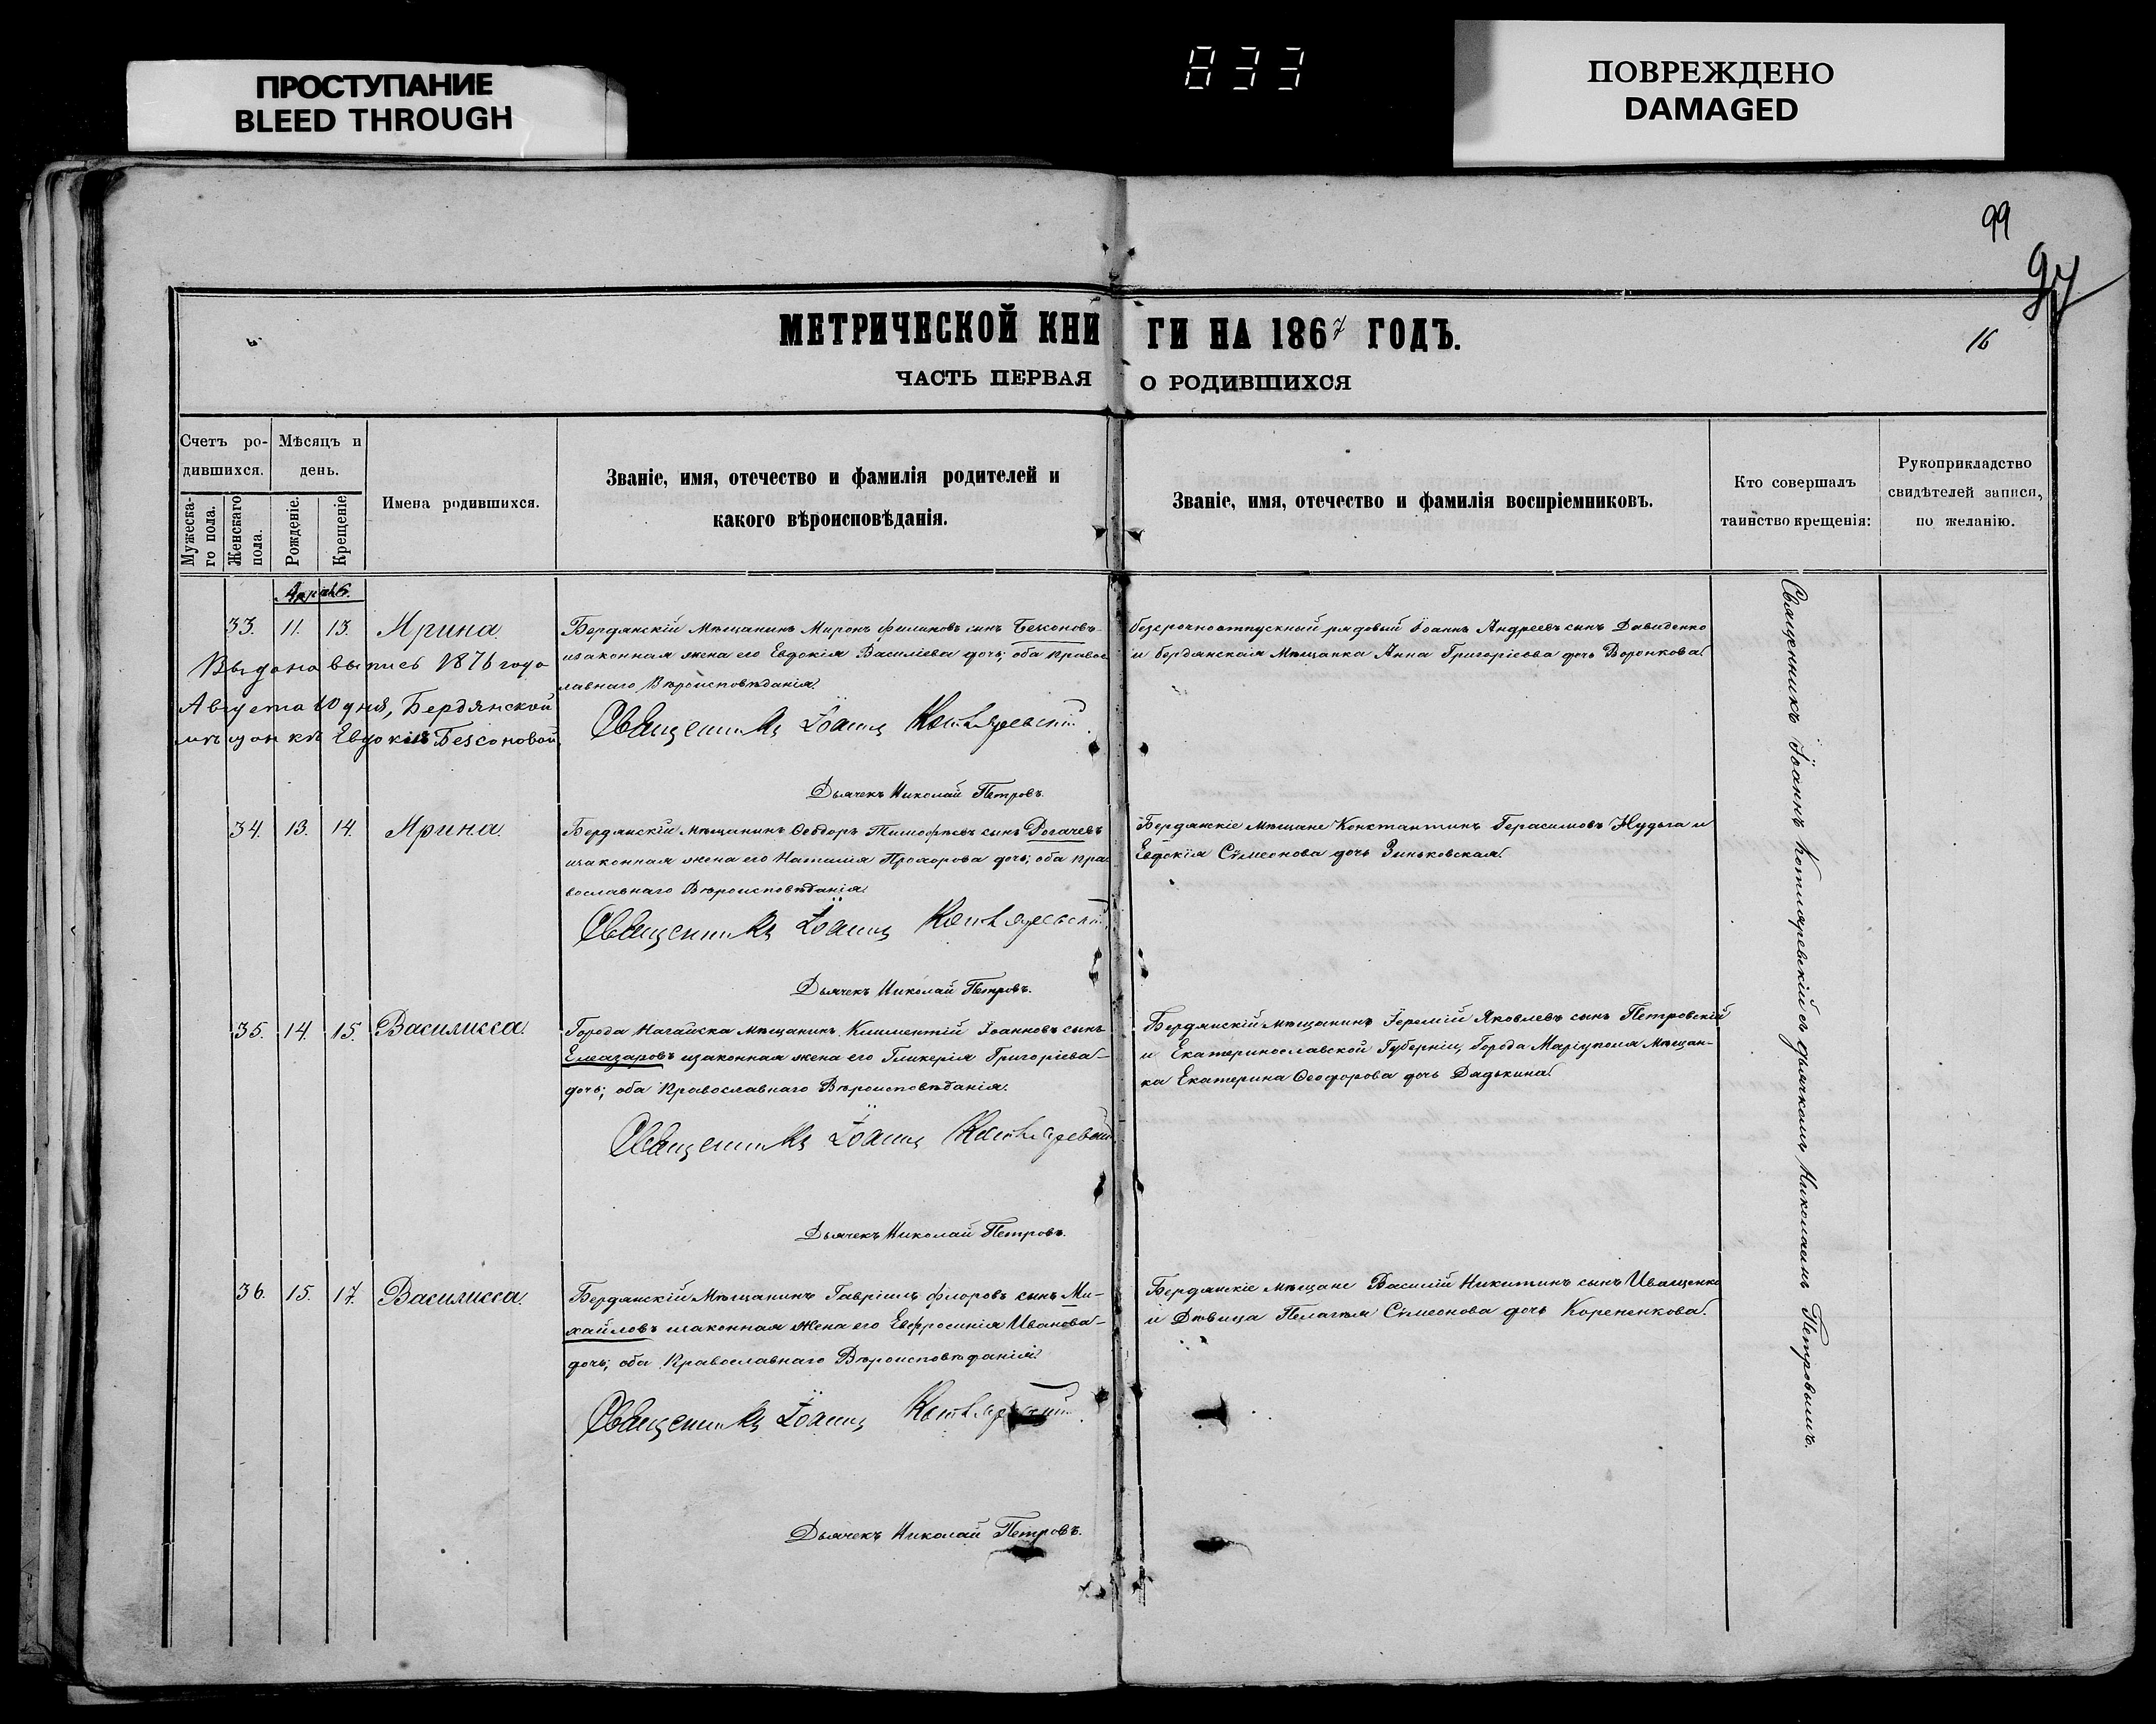 ПРОСТУПАНИЕ
BLEED THROUGH
833
ПОВРЕЖДЕНО
DAMAGED
99
97
МЕТРИЧЕСКОЙ КНИГИ НА 1867 ГОДЪ.
16
ЧАСТЬ ПЕРВАЯ О РОДИВШИХСЯ
Счетъ ро-
дившихся.
Мужеска-
го пола.
Женскаго
пола.
Мѣсяцъ и
день.
Рожденіе.
Крещеніе
Имена родившихся.
Званіе, имя, отечество и фамилія родителей и
какого вѣроисповѣданія.
Званіе, имя, отечество и фамилія воспріемниковъ.
Кто совершалъ
таинство крещенія:
Рукоприкладство
свидѣтелей записи,
по желанію.
Апрѣль.
33. 11. 13. Ирина.
Бердянскій Мѣщанинъ Миронъ Филиповъ сынъ Безсоновъ
изаконная жена его Евдокія Василіева дочь; оба правос
лавнаго Вѣроисповѣданія.
Священникъ Іоаннъ Котляревскій.
Дьячекъ Николай Петровъ.
безсрочноотпускный рядовый Іоаннъ Андреевъ сынъ Давиденко
и бердянская Мѣщанка Анна Григоріева дочь Воронкова.
Выдана выпись 1876 года
Августа 10 дня, Бердянской
мѣщанкѣ Евдокіи Безсоновой.
34. 13. 14. Ирина.
Бердянскій мѣщанинъ Ѳеодоръ Тимофѣевъ сынъ Догачевъ
изаконная жена его Наталія Прохорова дочь; оба пра
вославнаго Вѣроисповѣданія.
Священникъ Іоаннъ Котляревскій.
Дьячекъ Николай Петровъ.
Бердянскіе мѣщане Константинъ Герасимовъ Нудьга и
Евдокія Сѵмеонова дочь Зиньковская.
35. 14. 15. Василисса.
Города Ногайска мѣщанинъ Климентій Іоанновъ сынъ
Елеазаровъ изаконная жена его Гликерія Григоріева
дочь; оба Православнаго Вѣроисповѣданія.
Священникъ Іоаннъ Котляревскій
Дьячекъ Николай Петровъ.
Бердянскій мѣщанинъ Іеремій Яковлевъ сынъ Петровскій
и Екатеринославской Губерніи, Города Маріуполя Мѣщан-
ка Екатерина Ѳеодорова дочь Дадькина.
36. 15. 17. Василисса.
Бердянскій Мѣщанинъ Гавріилъ Флоровъ сынъ Ми-
хайловъ изаконная жена его Евфросинія Иванова
дочь; оба Православнаго Вѣроисповѣданія.
Священникъ Іоаннъ Котляревскій.
Дьячекъ Николай Петровъ.
Бердянскіе мѣщане Василій Никитинъ сынъ Иващенко
и Дѣвица Пелагѣя Сѵмеонова дочь Корененкова.
Священникъ Іоаннъ Котляревскій съ дьячкомъ Николаемъ Петровымъ.